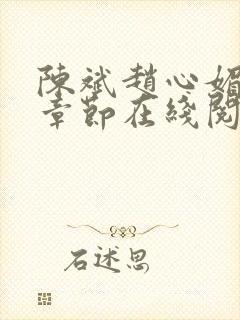 陳斌趙心媚
章節在綫閱
石述思